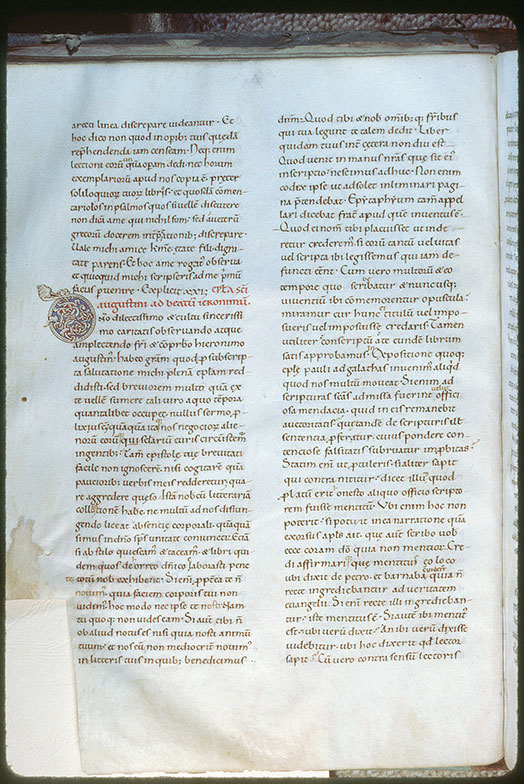 areti linea discrepare uideantur. Et
hoc dico non quod in opib; tuis quędā
rep̄hendenda. iam censeam. Neq; enim
lectioni eorū unquā opam dedi. nec horum
exemplariorū apud nos copia ē. preter
soliloquiorū tuorū libros. et quosdā cōmen
tariolos in psalmos quos si uellē discutere
non dicā a me qui nichil sum. sed a ueterū
grecorū docerem int̄p̄tationib; discrepare.
Vale mi amice k̄me. ętate fili. digni
tate parens. & hoc a me rogat' obserua
ut quicquid michi scripseris ad me primū
facias puenire. Explicit xxxi; epła scī
augustini ad beatū ieronimū.
Dño dilectissimo & cultu sincerissi
mo caritatis obseruando atque
amplectendo frī & cōprbo hieronimo
augustin'. habeo grām quod p subscrip
ta salutatione michi plenā epłam red
didisti. sed breuiorem multū quā ex
te uellē sumere. tali uiro a quo tēpora
quantalibet occupet nullus sermo. p
lixius
norū
ingentib;
facile non ignoscerē. nisi cogitarē quā
paucorib; uerbis meis redderetur. qua
re aggredere quęso. istā nobcū litterariā
collocutionē habe. ne multū ad nos disiun
gendo liceat absentię corporali. quāquā
simus in dn̄o sp̄s unitate coniuncti. &
si ab stilo quiescam' & taceam'. & libri qui
dem quos de orreo dn̄ico laborasti. pene
te totū nob exhibent. Si enī. ppt̄ea te n̄
nouim' quia faciem corporis tui non
uidem'. hoc modo nec ipse te nosti. Nam
tu quoq; non uides eam. Si autē tibi n̄
ob aliud notus es nisi quia nosti animū
tuum. & nos eū non mediocrit̄ nouim'
in litteris tuis in quib; benedicimus
dn̄m. Quod tibi & nob omīb; q; frībus
qui tua legunt te talem dedit. Liber
quidam tuus int̄ cetera non diu est
quod uenit in manus nrās. que sit ei'
inscriptio. nescimus adhuc. Non enim
codex ipse ut adsolet in liminari pagi
na p̄tendebat. Epytaphyum tam̄ appel
lari dicebat frāt apud quē inuentus ē.
Quod ei nom̄ tibi placuisse ut indi
retur crederem'. si eorū tantū uel uitas
uel scripta ibi legissemus qui iam de
functi eēnt. Cum uero multorū & eo
tempore quo scribatur & nunc usq;
uiuentiū ibi cōmemorentur opuscula.
miramur cur hunc titulū uel impo
sueris uel imposuisse credaris. Tamen
utiliter conscriptū a te eundē librum
satis approbamus. In expositione quoq;
eplę pauli ad galathas inuenim' aliqd
quod nos multū moueat. Si enim ad
scripturas scās admissa fuerint uelut offici
osa mendacia. quid in eis remanebit
auctoritatis? quę tandē de scripturis illis
sententia pferetur. cuius pondere con
tentiosę falsitatis subruatur improbitas?
Statim enī ut ptuleris. si aliter sapit
qui contra nititur. dicet illud quod
platū erit. onesto aliquo officio scripto
rem fuisse mentitū. Vbi enim hoc non
poterit. si potuit in ea narratione quā
exorsus apls ait. que autē scribo uob
ecce coram dō quia non mentior. Cre
di affirmariq; quę mentitus eo loco
ubi dixit de petro. & barnaba. cū uiderē quia n̄
recte ingrediebantur ad ueritatem
euangelii. Si enim recte illi ingrediebā
tur. iste mentitus ē. Si autē ibi mentit'
est. ubi uerū dixit? An ibi uerū dixisse
uidebitur. ubi hoc dixerit qd lector
sapit? Cū uero contra sensū lectoris